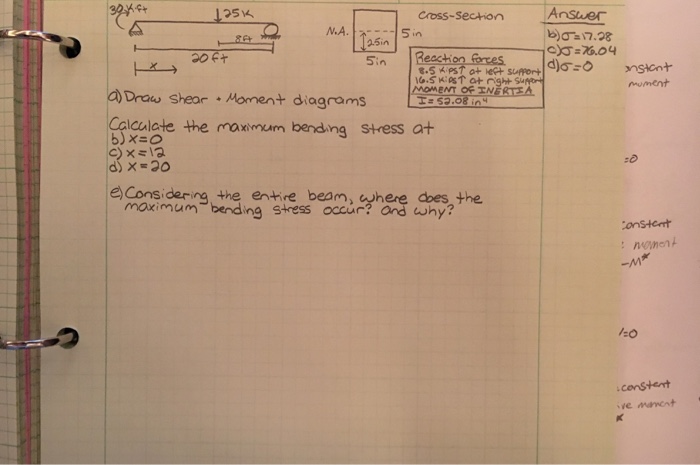 30 k·ft
25K
8ft
20 ft
x
N.A.
2.5in
5in
5in
Cross-section
Reaction forces
8.5 KIPS↑ at left support
16.5 KIPS↑ at right support
MOMENT OF INERTIA
I = 52.08 in⁴
Answer
b) σ = 17.28
c) σ = 76.04
d) σ = 0
a) Draw shear + Moment diagrams
Calculate the maximum bending stress at
b) x=0
c) x=12
d) x=20
e) Considering the entire beam, where does the
maximum bending stress occur? and why?
onstant
moment
=0
constant
: moment
-M*
=0
constant
ve moment